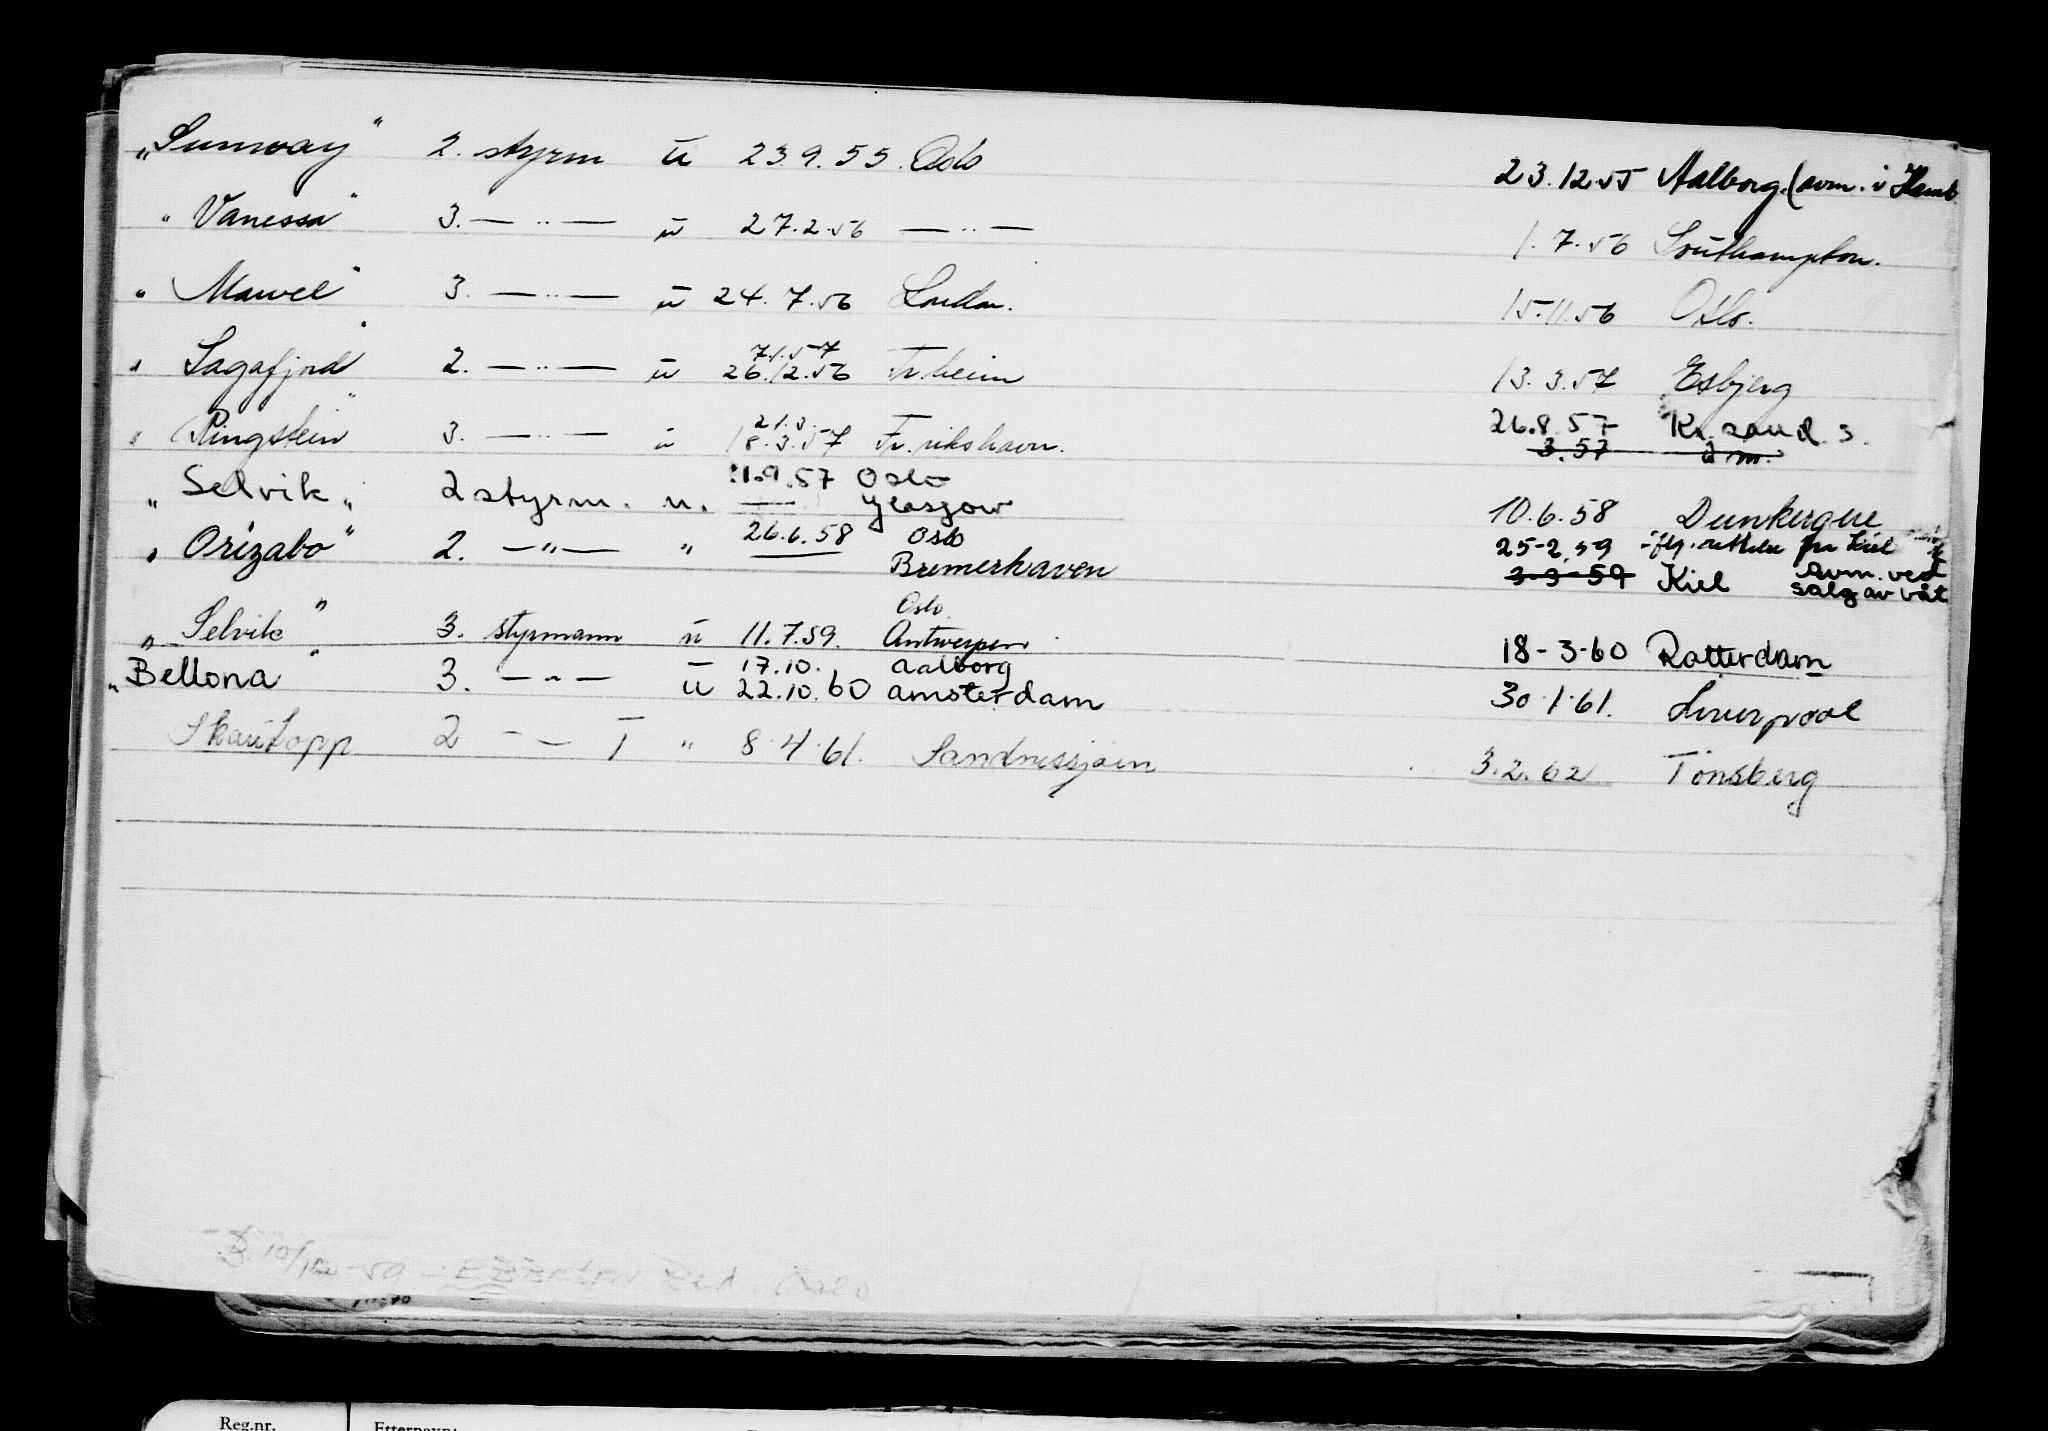 „Sunway" 2. styrm ū 23.9.55. Oslo 23.12.55 Aalborg (avm. i Hamb
„Vanessa" 3. — „ — ū 27.2.56 — „ — 1.7.56 Southampton.
„ " 3. — „ — ū 24.7.56 London. 15.11.56 Oslo.
7.1.57
„Sagafjord" 2. — „ — ū 26.12.56 Tr.heim 13.3.57 Esbjerg
21.3.
„Ringstein" 3. — „ — ū 18.3.57 Fr.rikshavn. 26.8.57 Kr.sand. S.
3.57
„Selvik" 2 styrm. u. 11.9.57 Oslo
— Glasgow 10.6.58 Dunkerque
„Orizabo" 2. — " — " 26.6.58 Oslo 25-2.59 fra Kiel
Bremerhaven 3-3-59 Kiel avm. ved
salg av båt
Oslo
„Selvik" 3. styrmann ū 11.7.59. Antwerpen 18-3-60 Rotterdam
17.10. Aalborg
„Bellona" 3. — " — ū 22.10.60 Amsterdam 30.1.61. Liverpool
Skautopp 2 - — T " 8.4.61. Sandnessjøen 3.2.62 Tönsberg
10/ -59 - Oslo
Reg.nr. Etternavn: